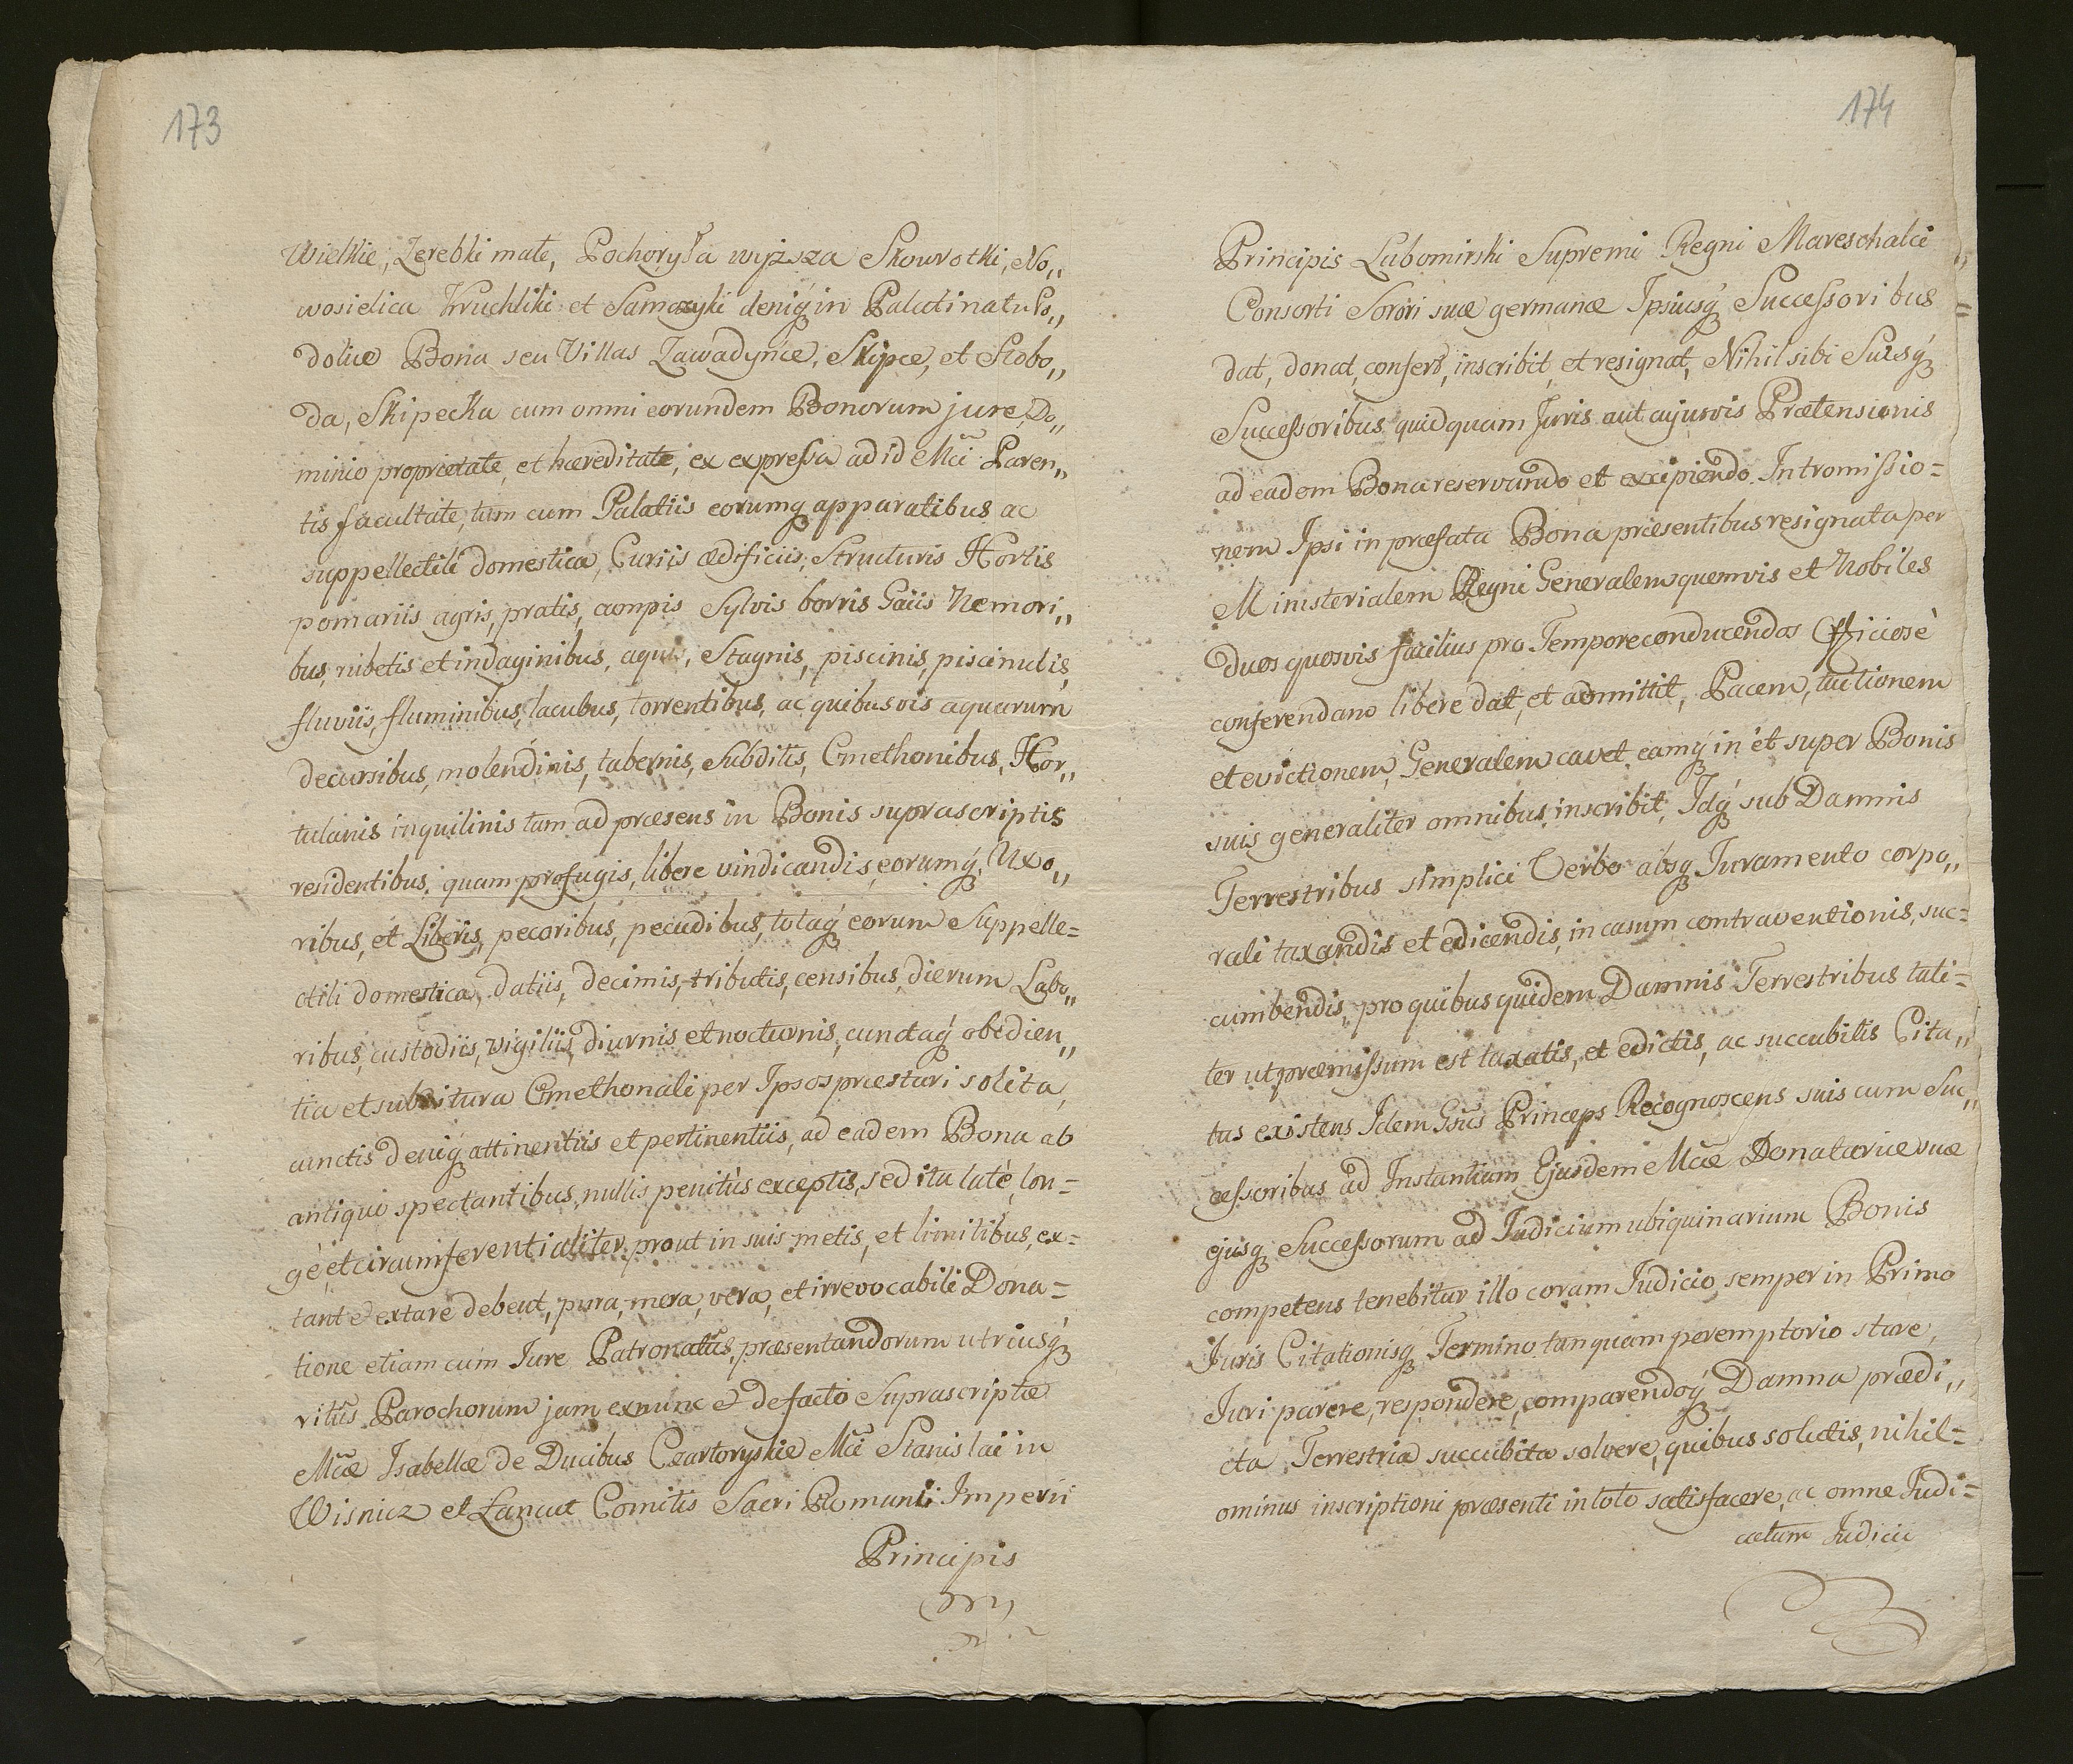 173
Wielkie, Zerebki małe, Pochoryła wyższa Skowrotki, No„
wosielica Kruchliki et Samczyki deniq́ in Palatinatu Po„
doliæ Bona seu Villas Zawadyńce, Skipce, et Słobo„
da, Skipecka cum omni eorundem Bonorum jure, Do„
minio proprietate, et hæreditate, ex expressa ad id Mci Paren„
tis facultate, tum cum Palatiis eorumq apparatibus ac
suppellectili domestica, Curiis ædificiis, Structuris Hortis
pomariis agris, pratis, campis Sylvis borris Gaiis Nemori„
bus, rubetis et indaginibus, aquis, Stagnis, piscinis, piscinulis,
fluviis, fluminibus, lacubus, torrentibus, ac quibusvis aquarum
decursibus, molendinis, tabernis, Subditis, Cmethonibus, Hor„
tulanis inquilinis tam ad præsens in Bonis suprascriptis
residentibus, quam profugis, libere vindicandis, eorumq́, Uxo„
ribus, et Liberis, pecoribus, pecudibus, totaq́ eorum Suppelle=
ctili domestica, datiis, decimis, tributis, censibus, dierum Labo„
ribus, custodiis, vigiliis, diurnis et nocturnis, cunctaq́ obedien„
tia et subditura Cmethonali per Ipsos præstari solita,
cunctis deniq́ attinentiis et pertinentiis, ad eadem Bona ab
antiquo spectantibus, nullis penitùs exceptis, sed ita latè, lon=
gè, et circumferentialiter, prout in suis metis, et limitibus, ex=
tant et extare debent, pura, mera, vera, et irrevocabili Dona=
tione etiam cum Jure Patronatûs, præsentandorum utriusq́
ritûs Parochorum jam exnunc et de facto Suprascriptæ
Mcæ Isabellæ de Ducibus Czartoryskie Mci Stanislai in
Wisnicz et Łancut Comitis Sacri Romani Imperii
Principis
174
Principis Lubomirski Supremi Regni Mareschalci
Consorti Sorori suæ germanæ Ipsiusq́ Successoribus
dat, donat, confert, inscribit, et resignat, Nihil sibi Suisq́
Successoribus quidquam Juris aut cujusvis Prætensionis
ad eadem Bona reservando et excipiendo. Intromissio=
nem Ipsi in præfata Bona præsentibus resignata per
Ministerialem Regni Generalem quemvis et Nobiles
duos quosvis facilius pro Tempore conducendos Officiosè
conferendam libere dat, et admittit, Pacem, tuitionem
et evictionem, Generalem cavet, eamq́ in et super Bonis
suis generaliter omnibus inscribit, Idq́ sub Damnis
Terrestribus simplici Verbo absq Juramento corpo„
rali taxandis et edicendis, in casum contraventionis, suc=
cumbendis, pro quibus quidem Damnis Terrestribus tali=
ter ut præmissum est taxatis, et edictis, ac succubitis Cita„
tus existens Idem Gsus Princeps Recognoscens suis cum Suc„
cessoribus ad Instantiam Ejusdem Mcæ Donatariæ suæ
ejusq Successorum ad Judicium ubiquinarium Bonis
competens tenebitur illo coram Judicio, semper in Primo
Juris Citationisq Termino tanquam peremptorio stare,
Juri parere, respondere, comparendoq́ Damna prædi„
cta Terrestria succubita solvere, quibus solutis, nihil=
ominus inscriptioni præsenti in toto satisfacere, ac omne Judi=
catum Judicii